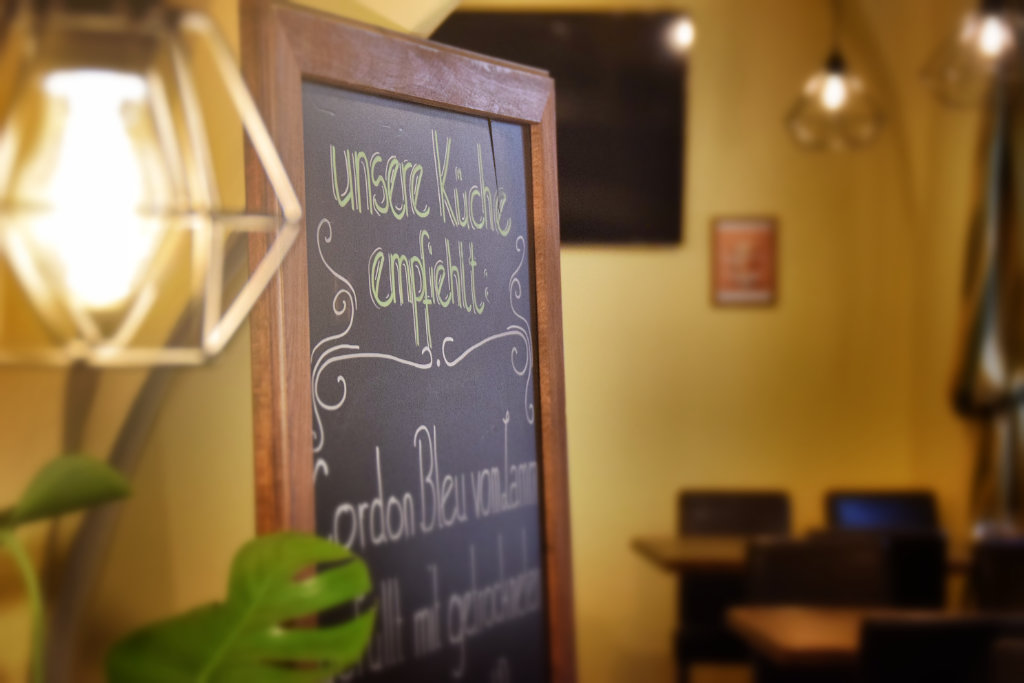 unsere Küche
empfiehlt:
ordon Bleu vom Lamm
füllt mit getrockneten